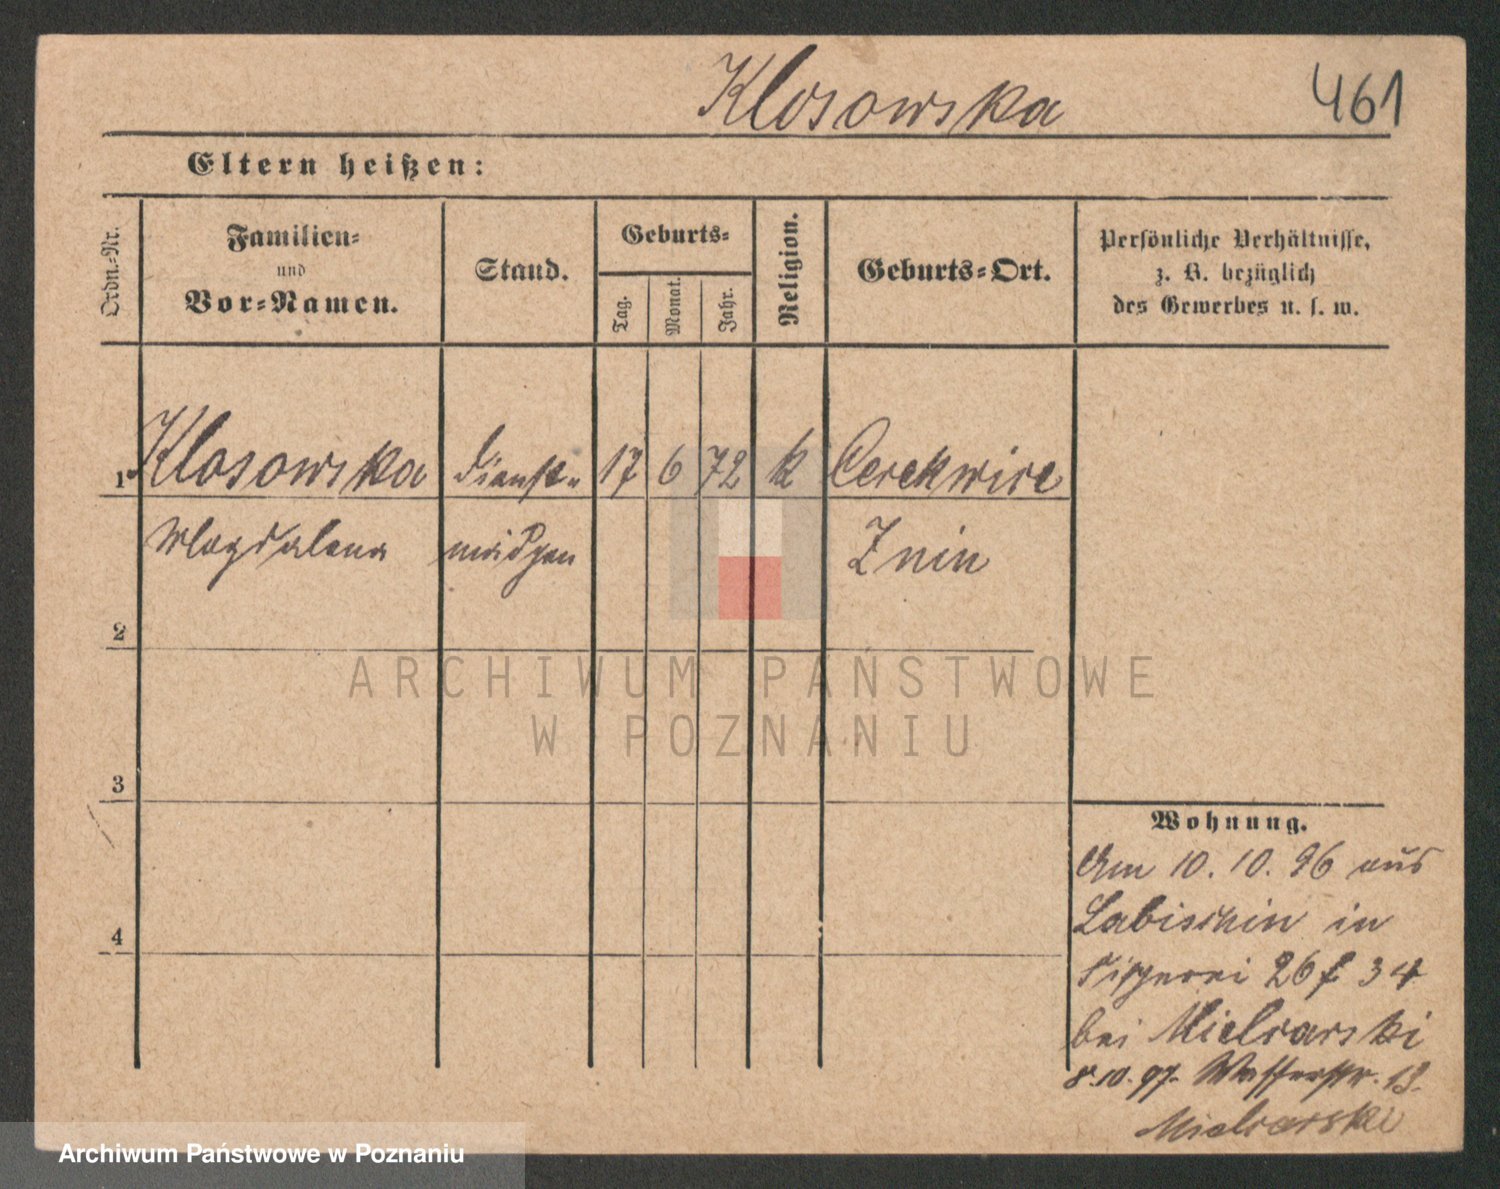 Klosowska
461
Eltern heißen:
Ordn.-Nr.
Familien-
und
Vor-Namen.
Stand.
Geburts-
Tag.
Monat.
Jahr.
Religion.
Geburts-Ort.
Persönliche Verhältnisse,
z. B. bezüglich
des Gewerbes u. s. w.
1 Klosowska Dienst- 17 6 72 k Cerekwice
Magdalena mädchen Znin
2
3
4
Wohnung.
Am 10. 10. 96 aus
Labischin in
Fischerei 26 34
bei Mielcarski
8.10.97. Wasserstr. 13.
Mielcarski
ARCHIWUM PAŃSTWOWE
W POZNANIU
Archiwum Państwowe w Poznaniu